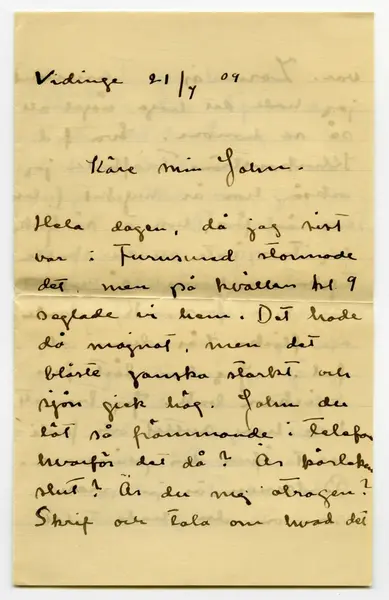 Vidinge 21/7 09
Käre min John.
Hela dagen, då jag sist
var i Furusund stormade
det, men på kvällen kl 9
seglade vi hem. Det hade
då mojnat, men det
blåste ganska starkt och
sjön gick hög. John du
låt så främmande i telefon
hvarför det då? Är kärleken
slut? Är du mig otrogen?
Skrif och tala om hvad det